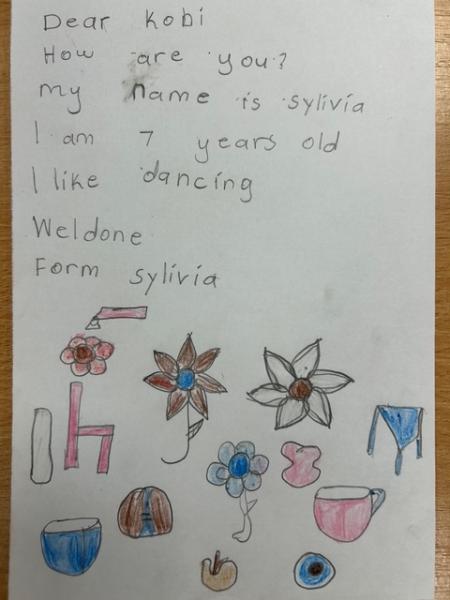 Dear Kobi
How are you?
my name is sylivia
I am 7 years old
I like dancing
Weldone
Form sylivia